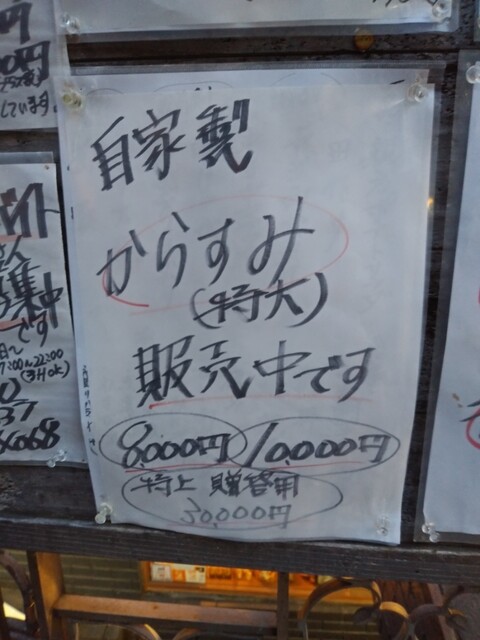 自家製
からすみ
(特大)
販売中です
8,000円
10,000円
特上 贈答用
30,000円
円
しています
バイト
募集中
です
17:00~22:00
(3H ok)